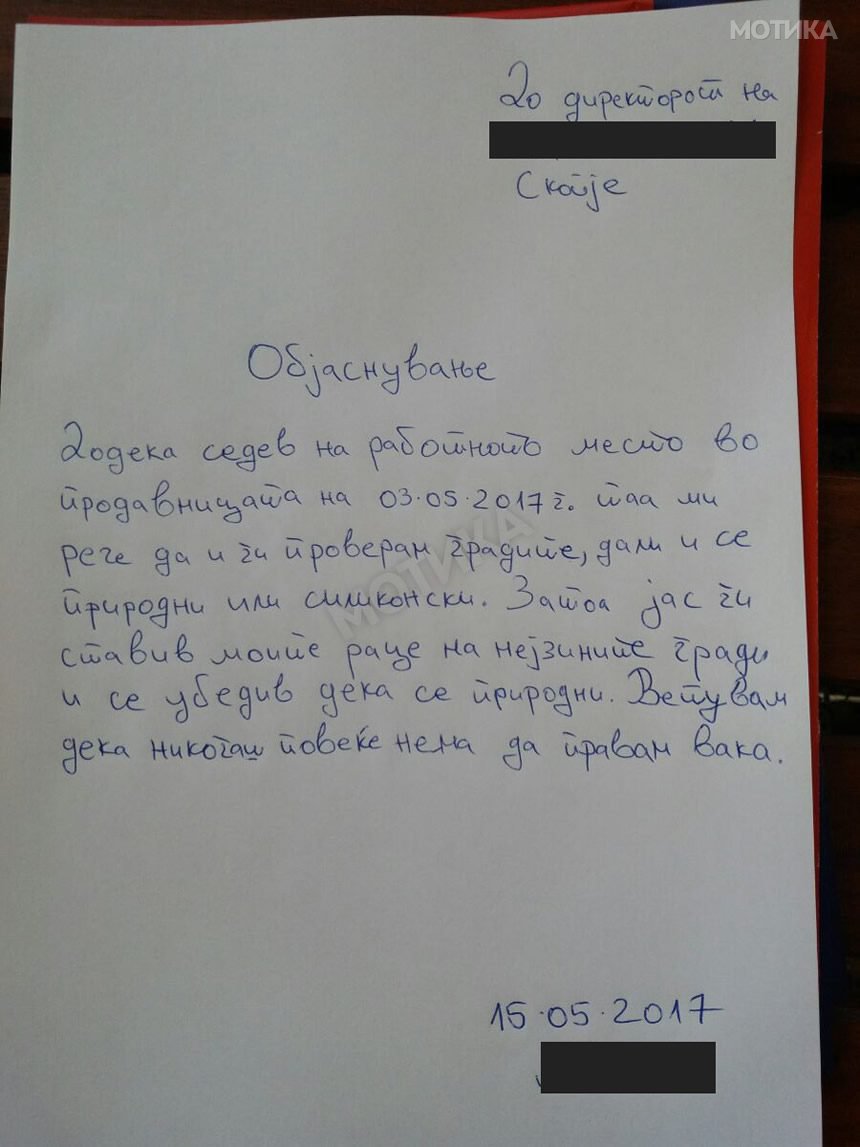 МОТИКА
До директорот на
Скопје
Објаснување
Додека седев на работното место во
продавницата на 03.05.2017 г. таа ми
рече да и ги проверам градите, дали и се
природни или силиконски. Затоа јас ги
ставив моите раце на нејзините гради
и се убедив дека се природни. Ветувам
дека никогаш повеќе нема да правам вака.
МОТИКА
15.05.2017